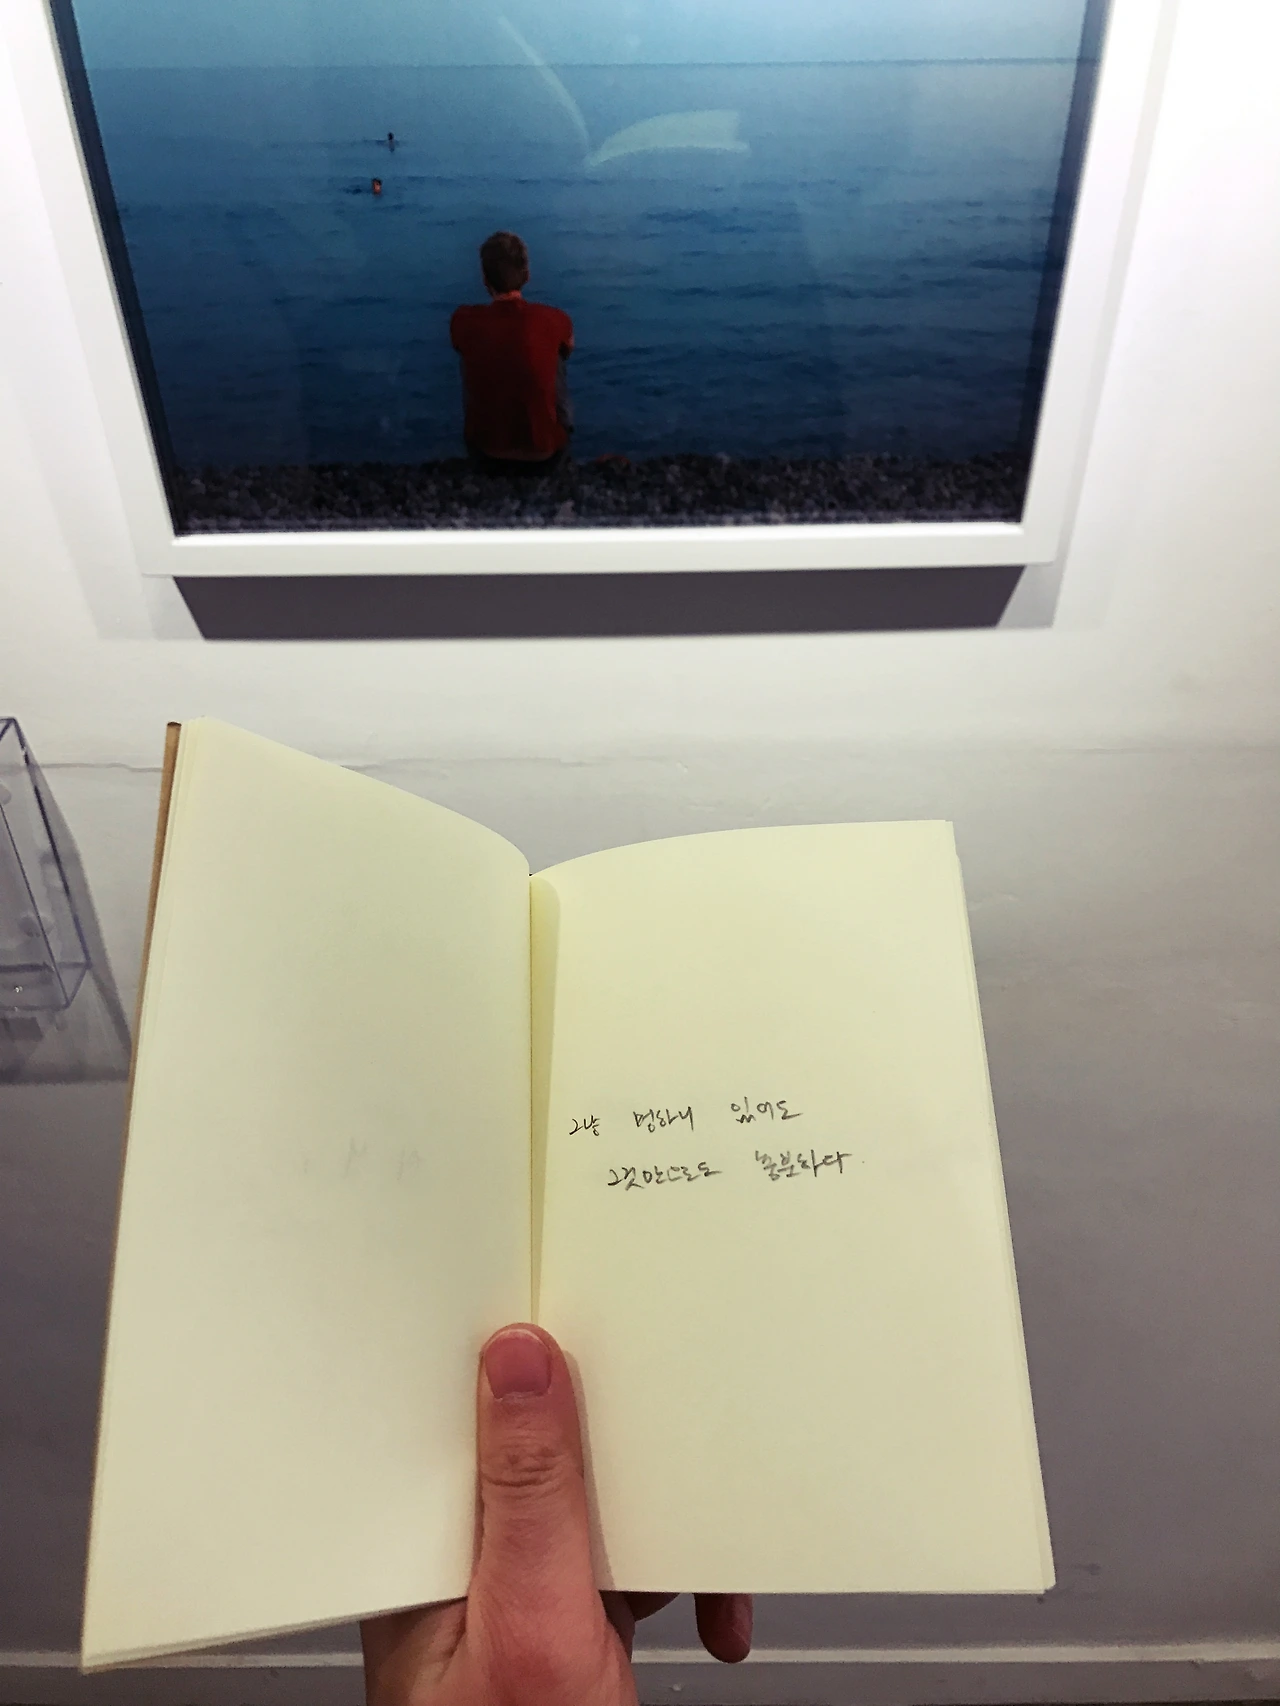 그냥 멍하니 있어도
그것만으로도 충분하다.